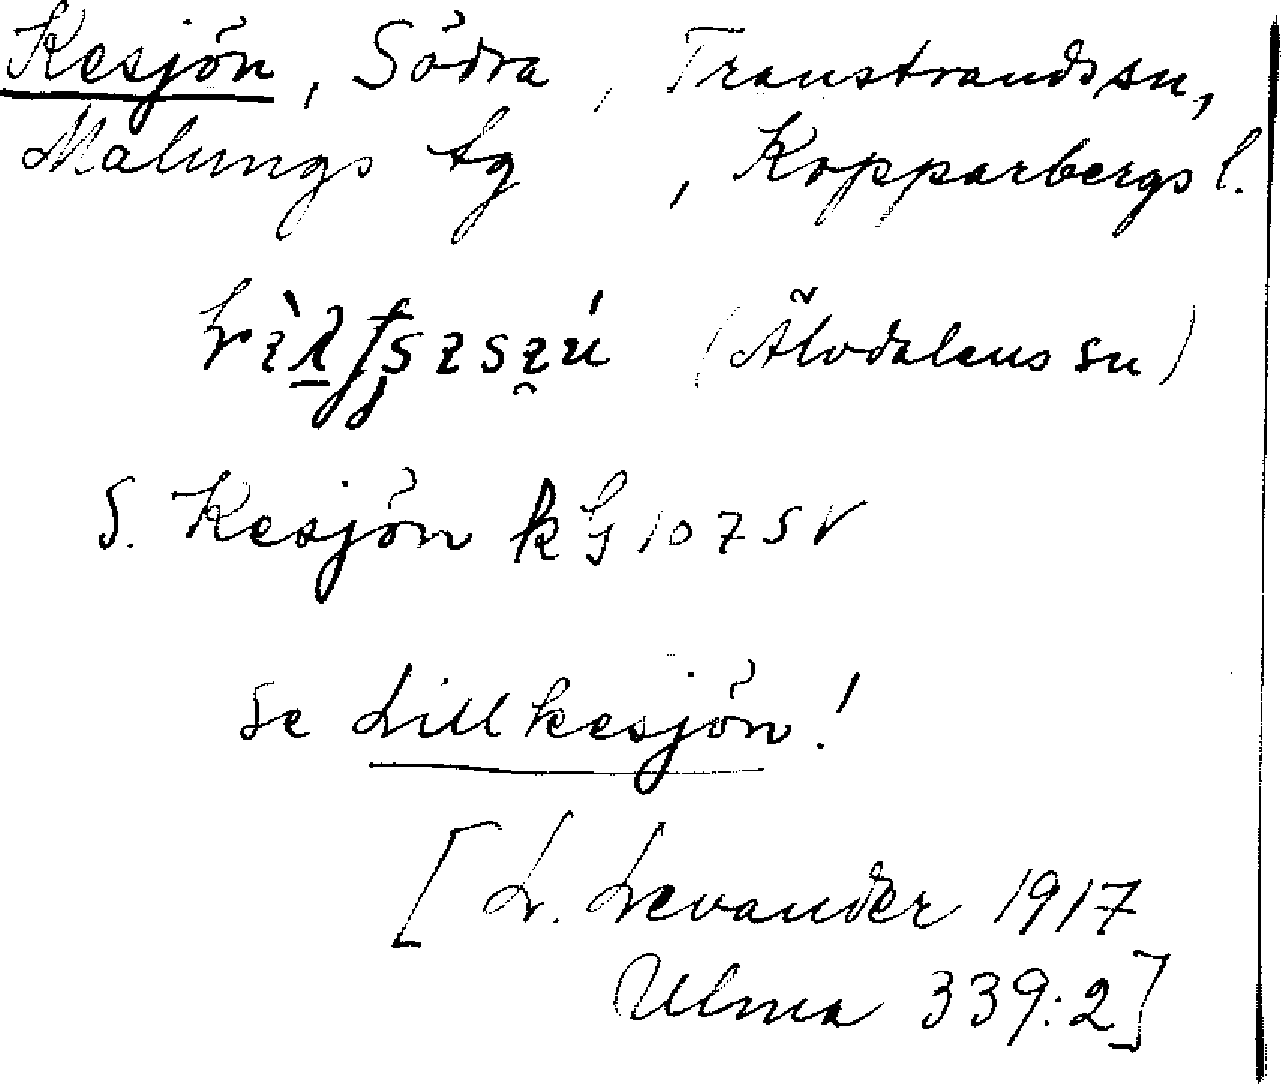 Kesjön, Södra, Transtrands sn,
Malungs tg, Kopparbergs l.
(Älvdalens sn)
S. Kesjön k G 107 SV
se Lillkesjön!
[L. Levander 1917
Ulma 339:2]